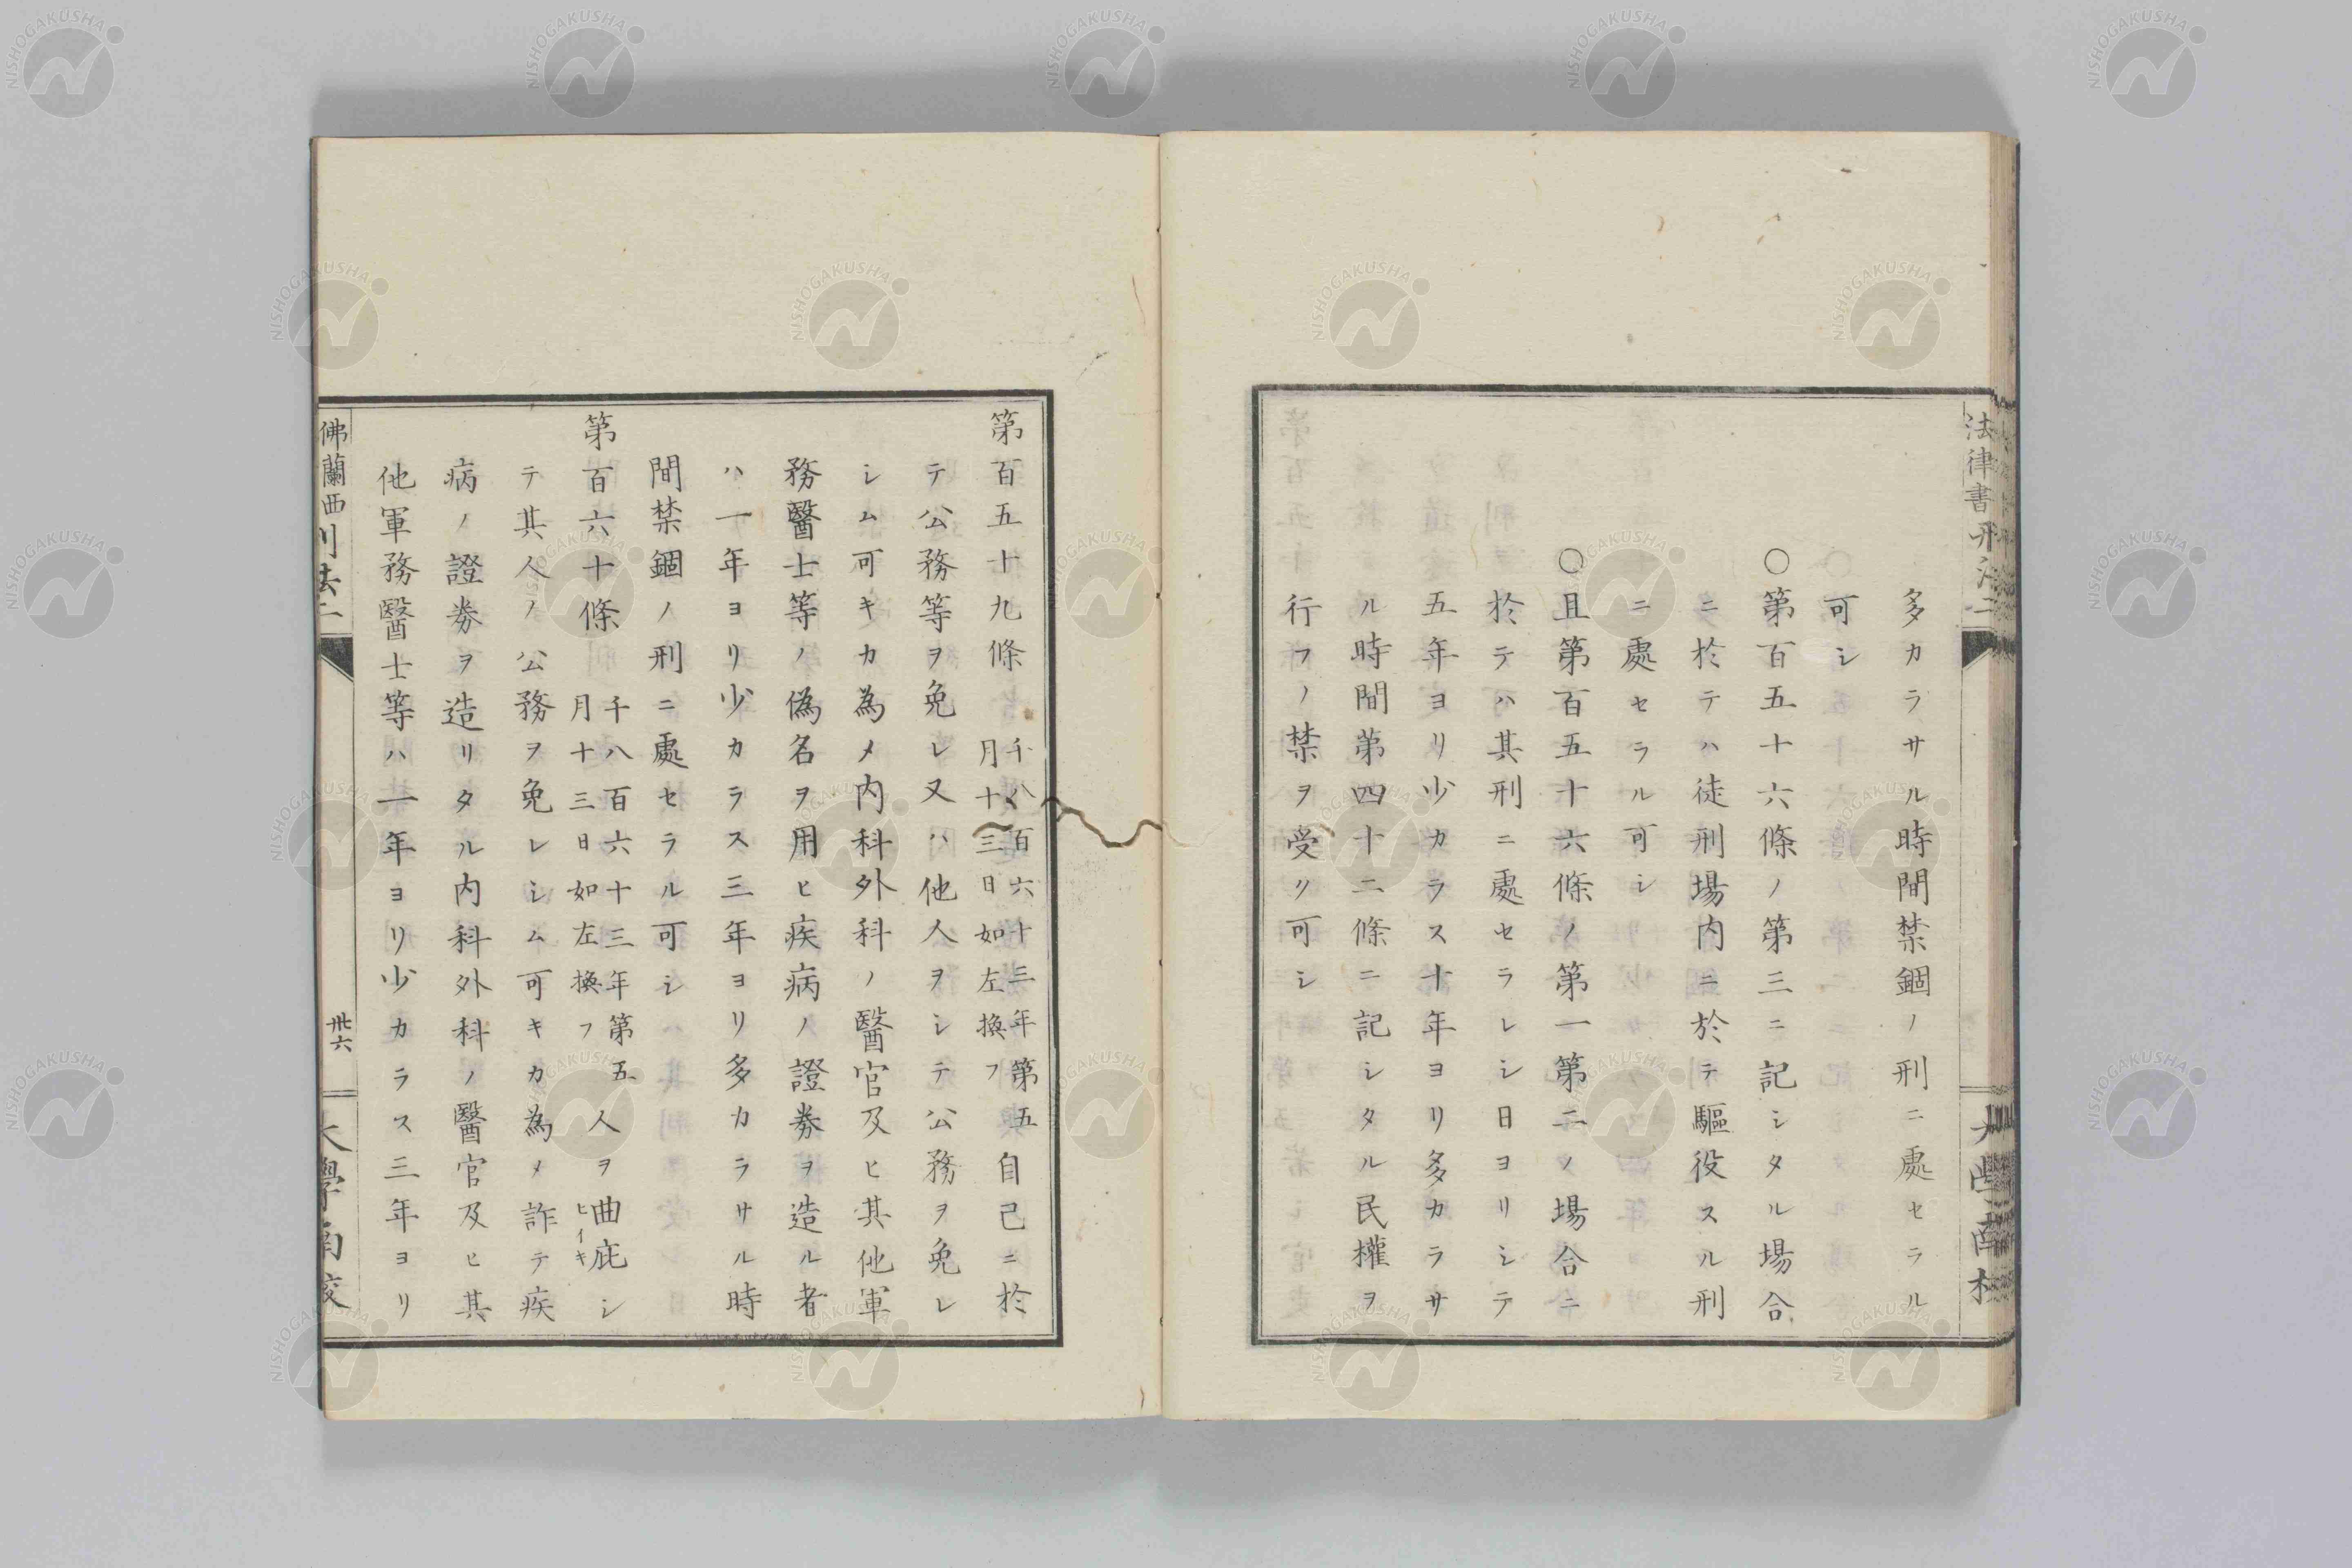 多カラサル時間禁錮ノ刑ニ處セラル
可シ
○第百五十六條ノ第三ニ記シタル場合
ニ於テハ徒刑場内ニ於テ驅役スル刑
ニ處セラル可シ
○且第百五十六條ノ第一第二ノ場合ニ
於テハ其刑ニ處セラレシ日ヨリシテ
五年ヨリ少カラス十年ヨリ多カラサ
ル時間第四十二條ニ記シタル民權ヲ
行フノ禁ヲ受ク可シ
第百五十九條 千八百六十三年第五
月十三日如左換フ 自己ニ於
テ公務等ヲ免レ又ハ他人ヲシテ公務ヲ免レ
シム可キカ為メ内科外科ノ醫官及ヒ其他軍
務醫士等ノ偽名ヲ用ヒ疾病ノ證券ヲ造ル者
ハ一年ヨリ少カラス三年ヨリ多カラサル時
間禁錮ノ刑ニ處セラル可シ
第百六十條 千八百六十三年第五
月十三日如左換フ 人ヲ曲庇シ
ヒイキ
テ其人ノ公務ヲ免レシム可キカ為メ詐テ疾
病ノ證券ヲ造リタル内科外科ノ醫官及ヒ其
他軍務醫士等ハ一年ヨリ少カラス三年ヨリ
法律書
佛蘭西
卅六
NISHOGAKUSHA